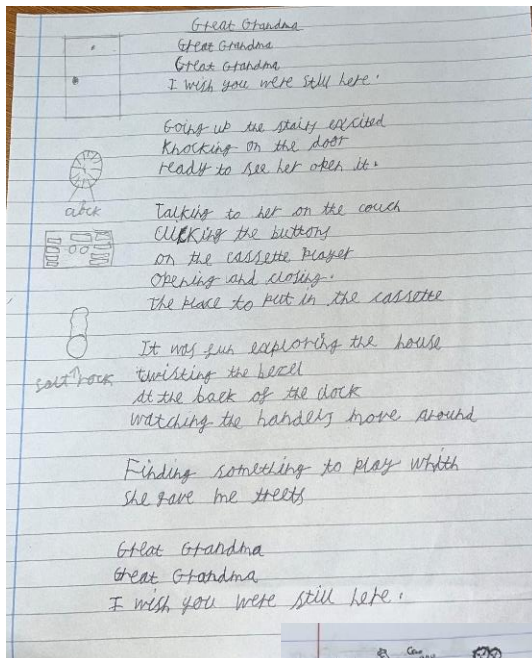 Great Grandma
Great Grandma
Great Grandma
I wish you were still here.
Going up the stairs excited
Knocking on the door
ready to see her open it.
Talking to her on the couch
Clicking the buttons
on the cassette player
opening and closing.
the place to put in the cassette
It was fun exploring the house
twisting the bezel
at the back of the clock
watching the handels move around
Finding something to play whith
she gave me treets
Great Grandma
Great Grandma
I wish you were still here.
clock
salt rock